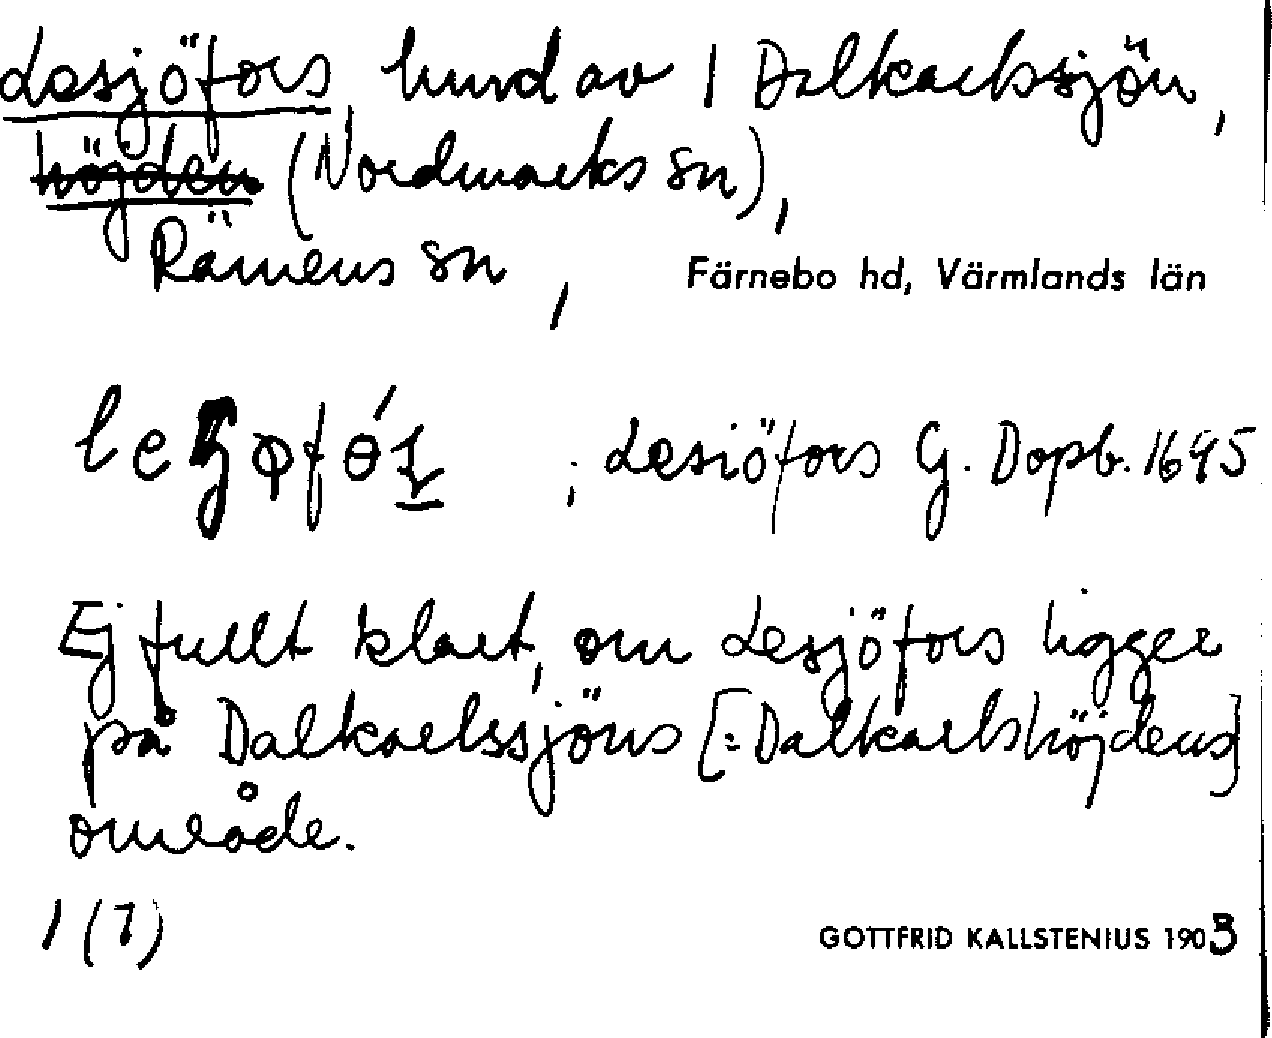 Lesjöfors, hmd av 1 Dalkarlssjön,
höjden (Nordmarks sn),
Rämens sn, Färnebo hd, Värmlands län
; Lesiöfors G. Dopb. 1695
Ej fullt klart, om Lesjöfors ligger
på Dalkarlssjöns [= Dalkarlshöjdens]
område.
1 (7)
GOTTFRID KALLSTENIUS 1903